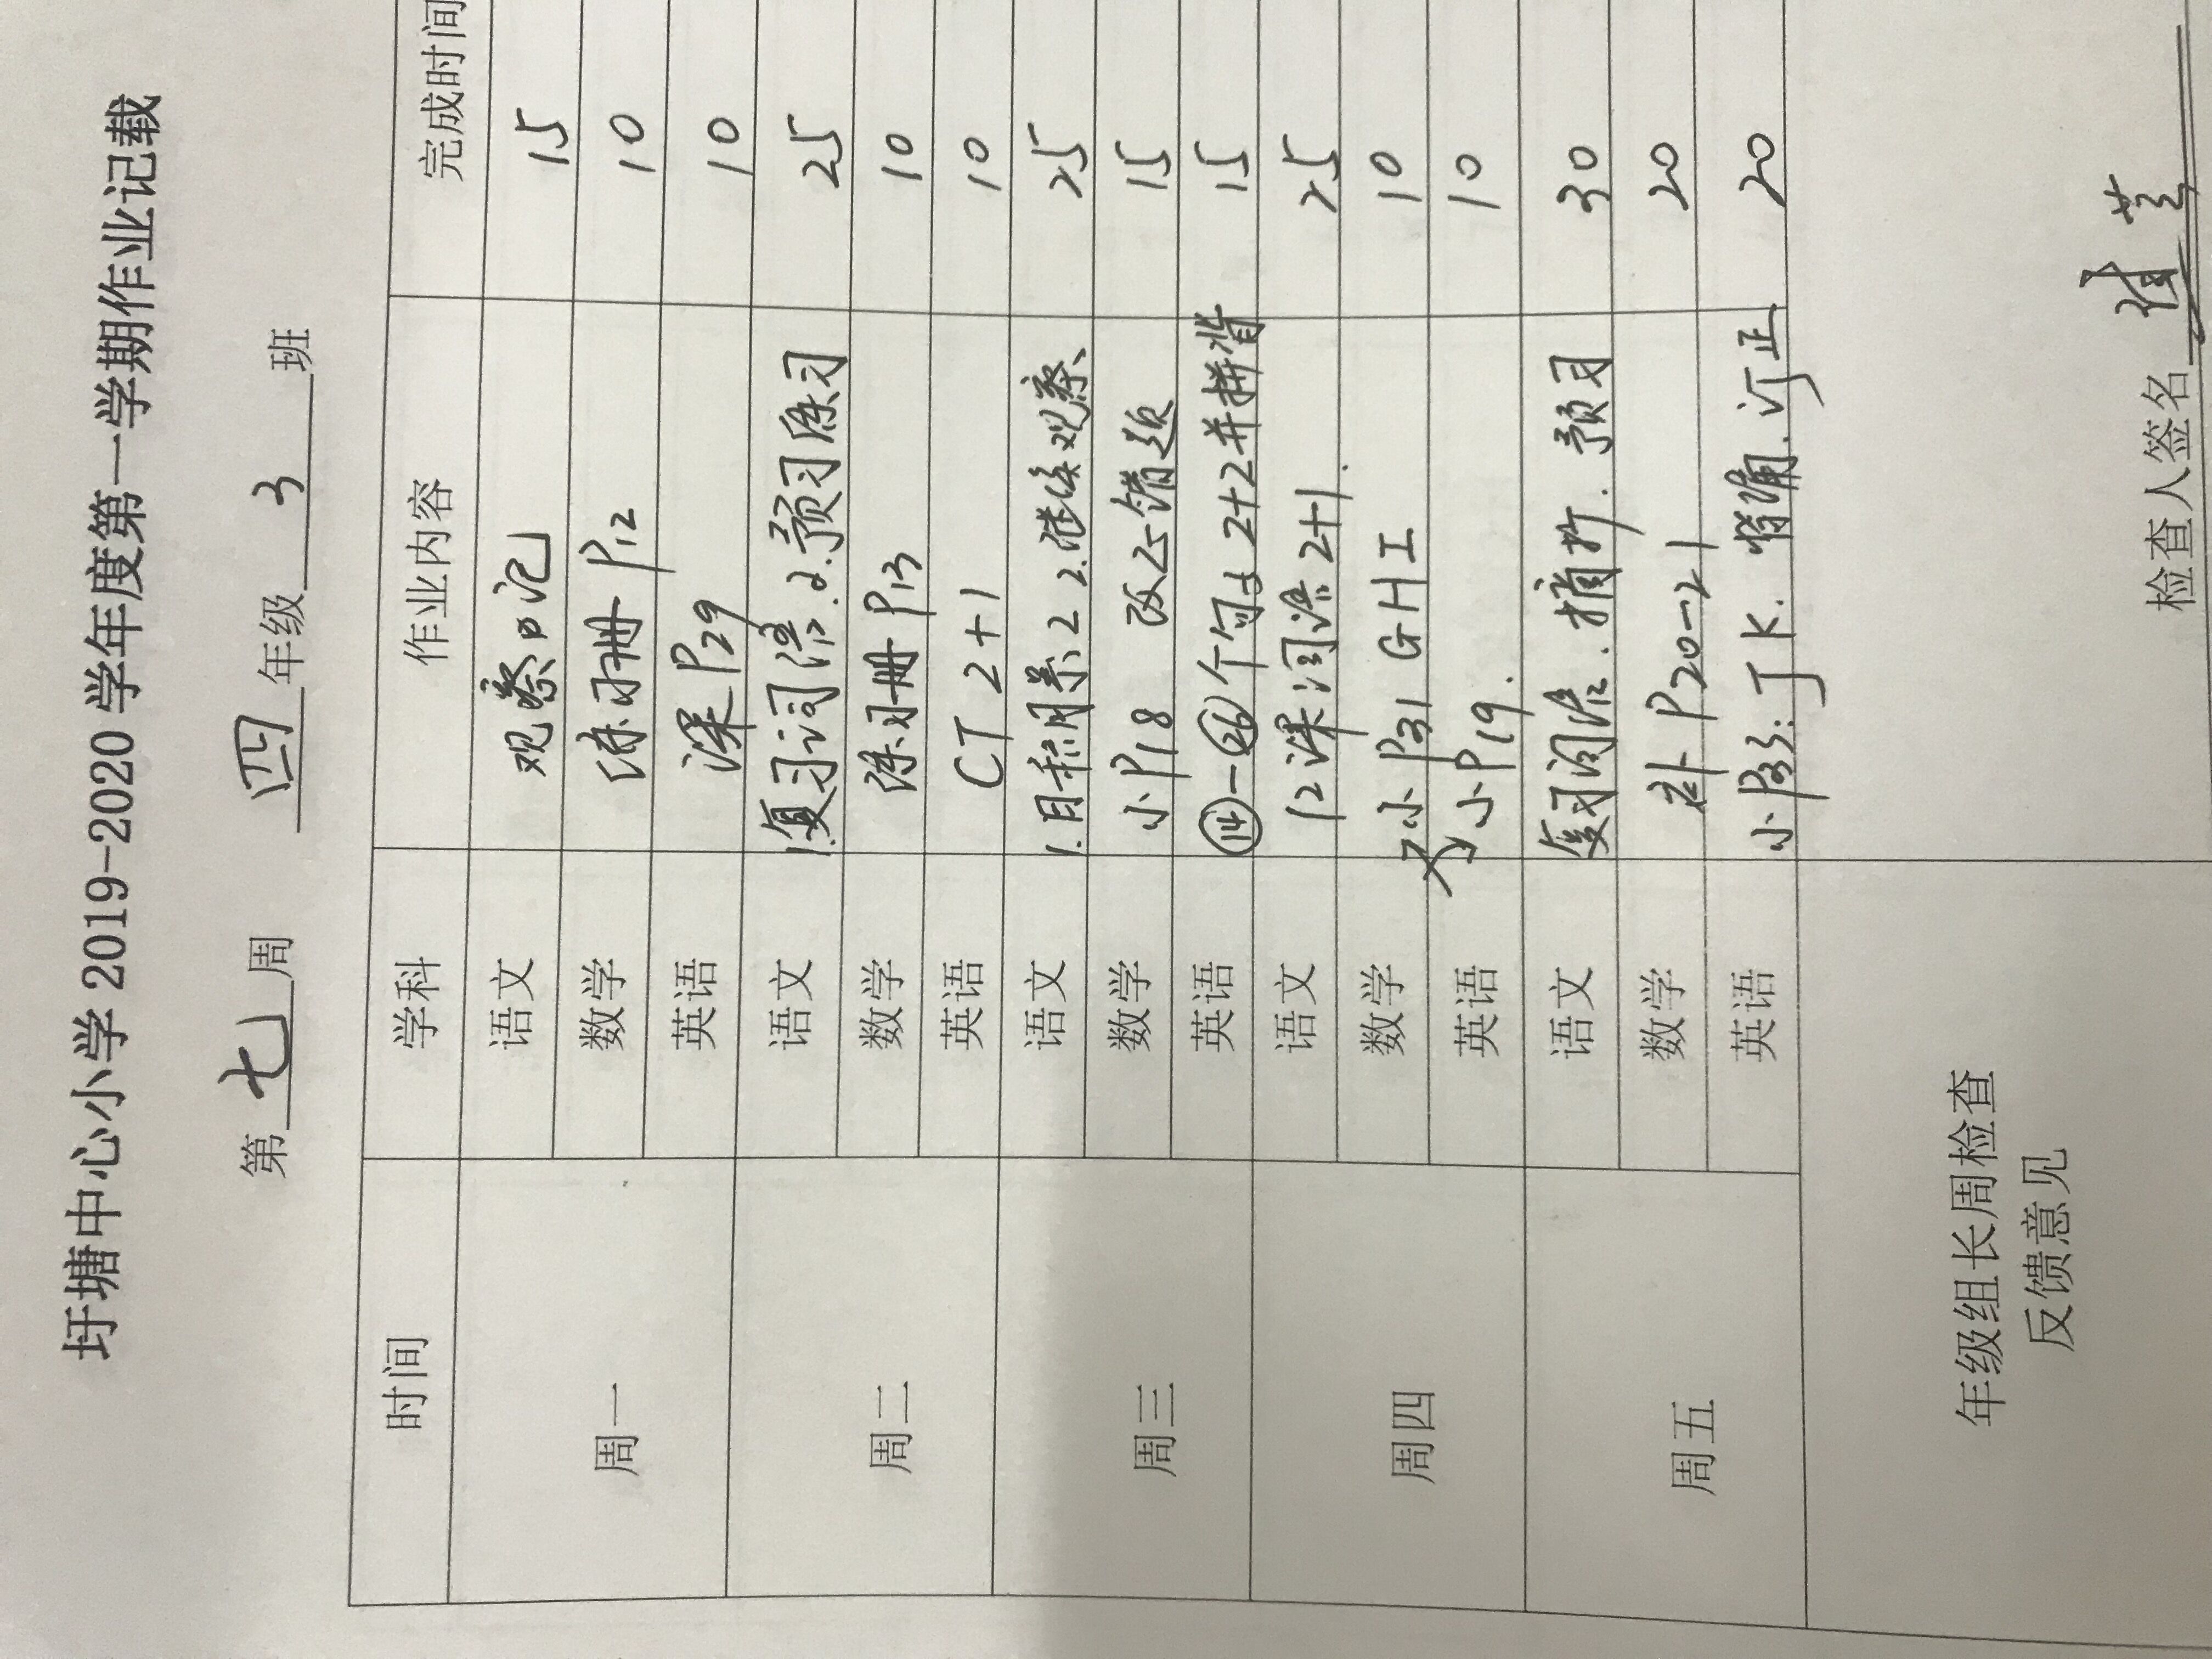 圩塘中心小学 2019-2020 学年度第一学期作业记载
第 七 周 四 年级 3 班
时间 学科 作业内容 完成时间
周一 语文 观察日记 15
数学 练习册 P12 10
英语 课 P29 10
周二 语文 1.复习词语.2.预习练习 25
数学 练习册 P13 10
英语 CT 2+1 10
周三 语文 1. 2 2.继续观察 25
数学 小P18 改25错题 15
英语 ⑭-㉖个句子2+2并拼背 15
周四 语文 12课词语2+1. 25
数学 小P31 GHI 10
英语 小P19. 10
周五 语文 复习词语.摘抄.预习 30
数学 补P20-21 20
英语 小P33:JK. 背诵.订正 20
年级组长周检查
反馈意见
检查人签名